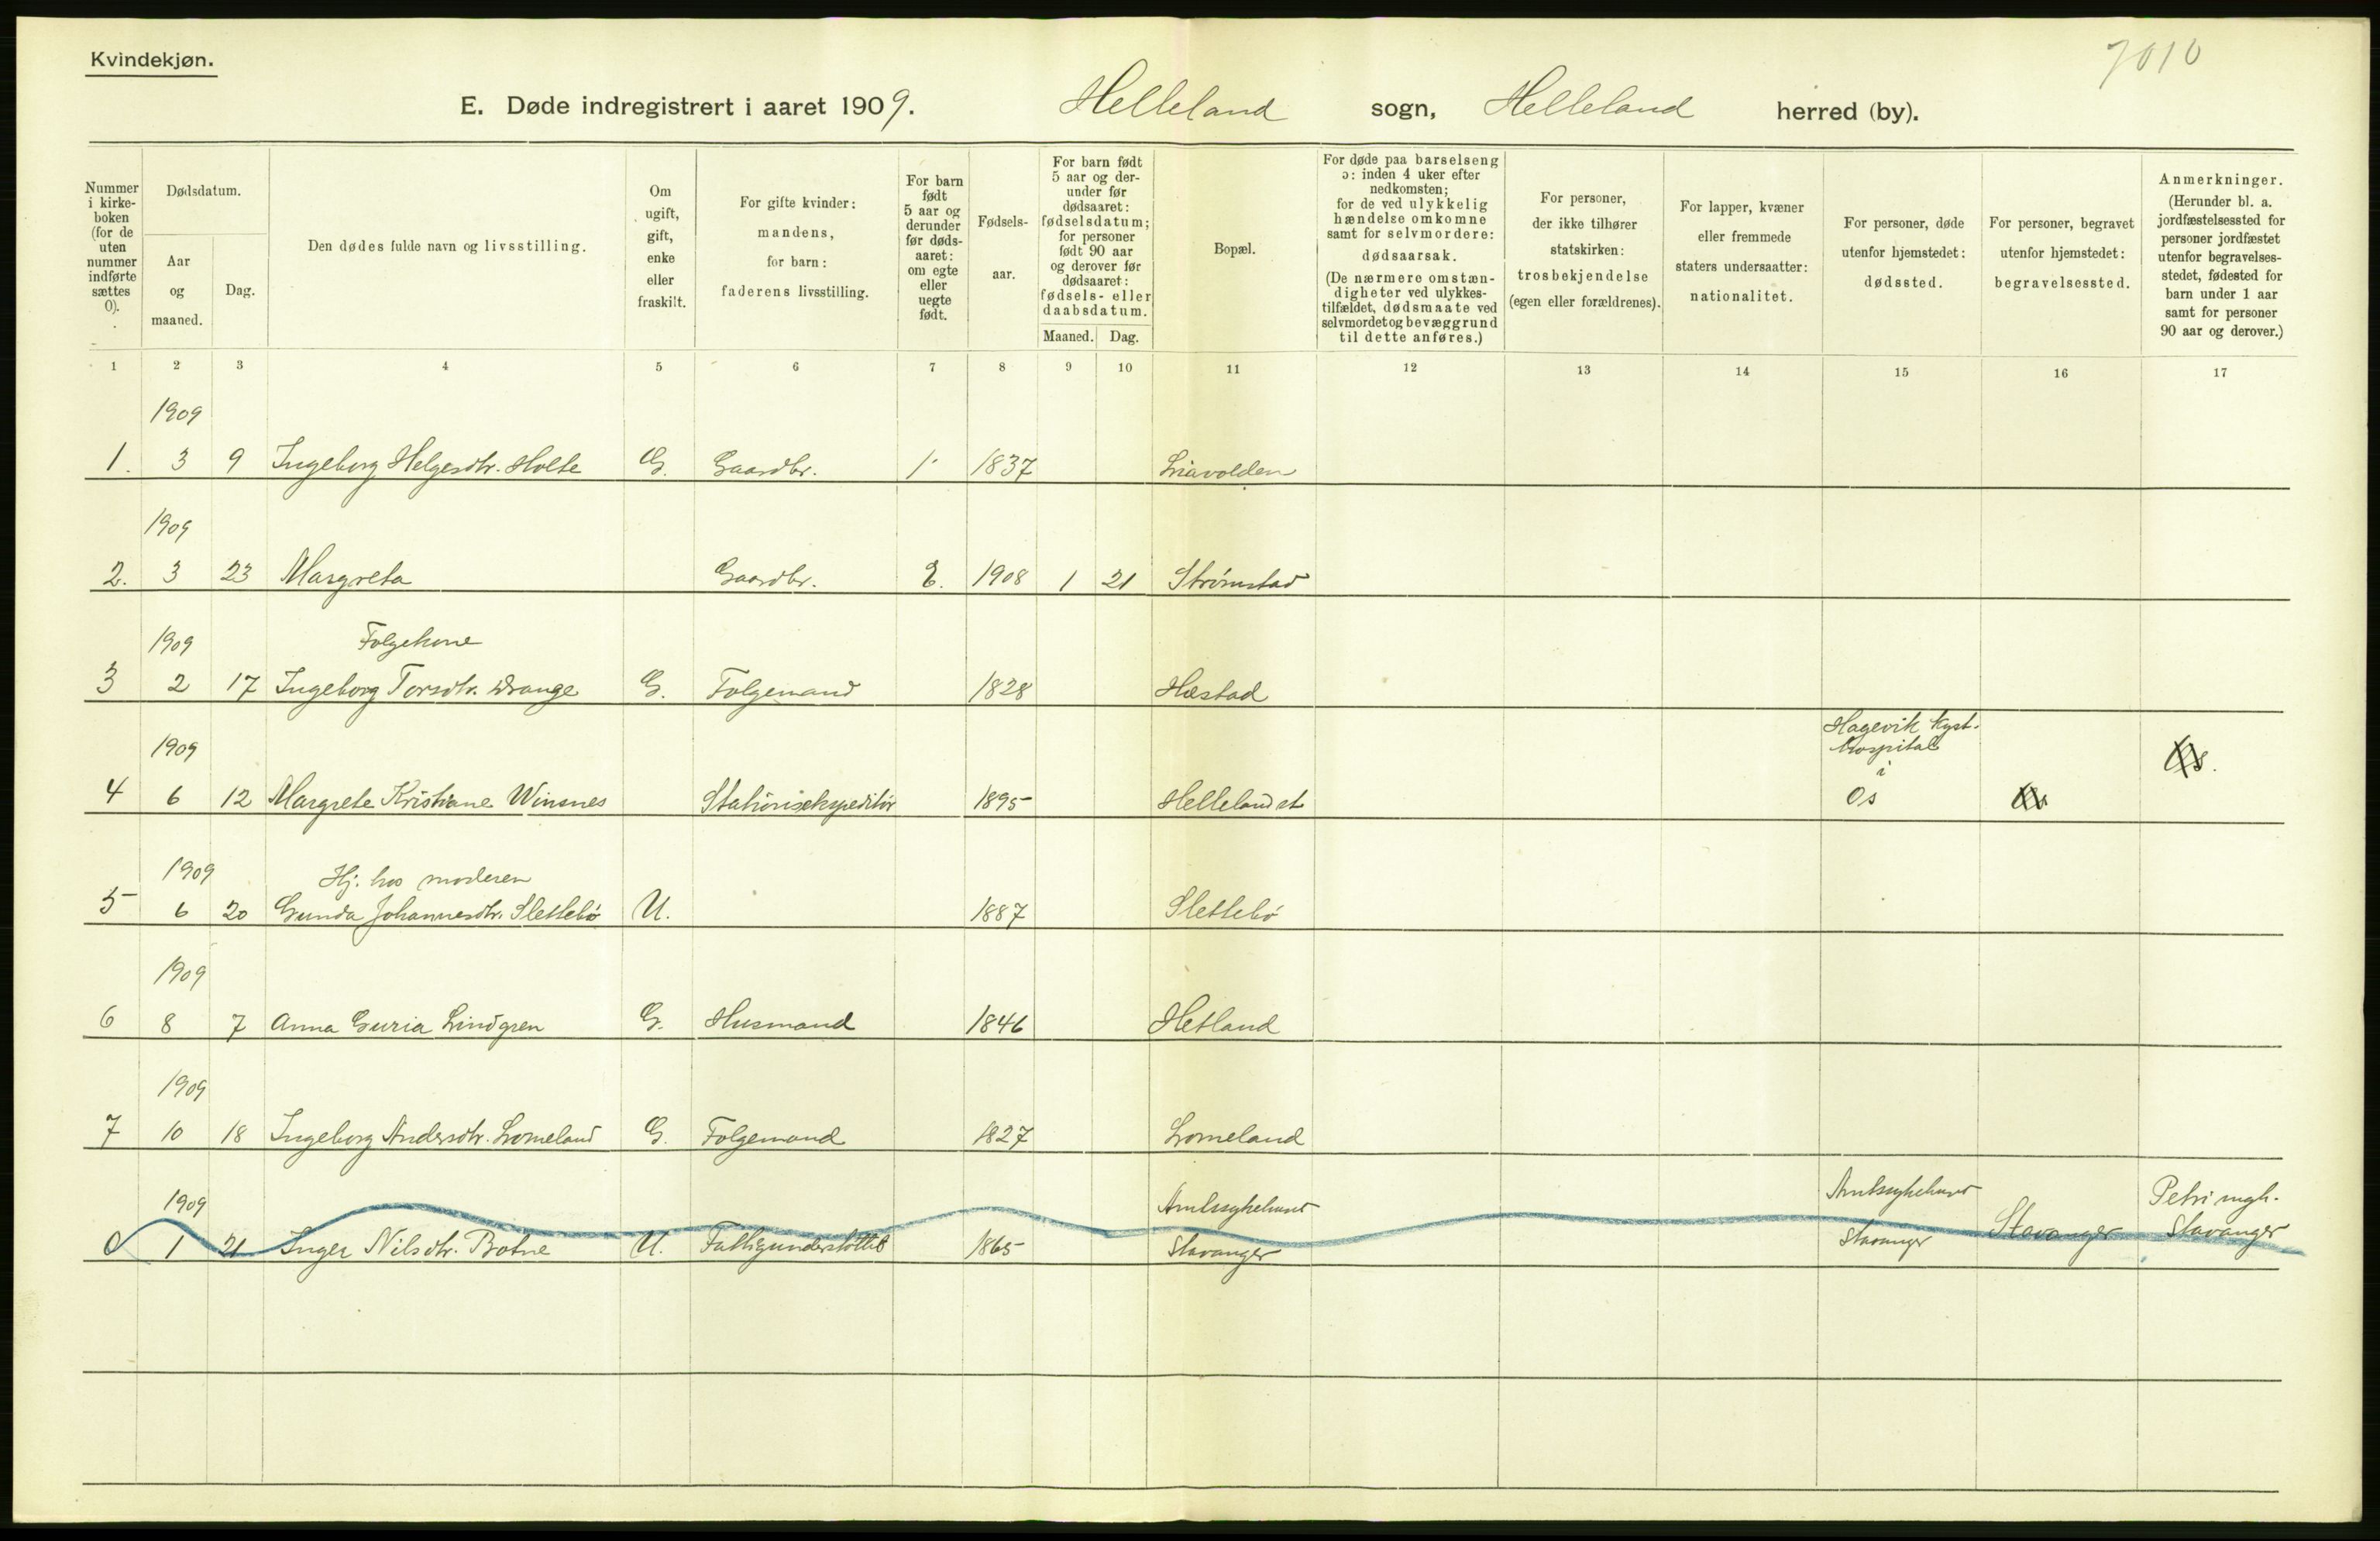 Kvindekjøn.
7010
E. Døde indregistrert i aaret 1909. Helleland sogn, Helleland herred (by).
Nummer i kirke- boken (for de uten nummer indførte sættes 0).
Dødsdatum.
Aar og maaned.
Dag.
Den dødes fulde navn og livsstilling.
Om ugift, gift, enke eller fraskilt.
For gifte kvinder: mandens, for barn: faderens livsstilling.
For barn født 5 aar og derunder før døds- aaret: om egte eller uegte født.
Fødsels- aar.
For barn født 5 aar og der- under før dødsaaret: fødselsdatum; for personer født 90 aar og derover før dødsaaret: fødsels- eller daabsdatum.
Maaned. Dag.
Bopæl.
For døde paa barselseng ɔ: inden 4 uker efter nedkomsten; for de ved ulykkelig hændelse omkomne samt for selvmordere: dødsaarsak. (De nærmere omstæn- digheter ved ulykkes- tilfældet, dødsmaate ved selvmordet og bevæggrund til dette anføres.)
For personer, der ikke tilhører statskirken: trosbekjendelse (egen eller forældrenes).
For lapper, kvæner eller fremmede staters undersaatter: nationalitet.
For personer, døde utenfor hjemstedet: dødssted.
For personer, begravet utenfor hjemstedet: begravelsessted.
Anmerkninger. (Herunder bl. a. jordfæstelsessted for personer jordfæstet utenfor begravelses- stedet, fødested for barn under 1 aar samt for personer 90 aar og derover.)
1 2 3 4 5 6 7 8 9 10 11 12 13 14 15 16 17
1909
1. 3 9 Ingeborg Helgesdtr. Holte G. Gaardbr. 1837 Liavolden
1909
2. 3 23 Margreta Gaardbr. E. 1908 1 21 Strømstad
1909 Folgekone
3 2 17 Ingeborg Torsdtr. Drange G. Folgemand 1828 Hæstad
1909 Hagevik Kyst-
hospital
i
4 6 12 Margrete Kristiane Winsnes Stationsekspeditør 1895 Helleland st Os
1909 Hj. hos moderen
5 6 20 Gunda Johannesdtr. Slettebø U. 1887 Slettebø
1909
6 8 7 Anna Guria Lindgren G. Husmand 1846 Hetland
1909
7 10 18 Ingeborg Andersdtr. Lomeland G. Folgemand 1827 Lomeland
1909 Amtssykehuset Amtssykehuset Petri mgh.
0 1 21 Inger Nilsdtr. Botne U. Fattigunderstøttet 1865 Stavanger Stavanger Stavanger Stavanger